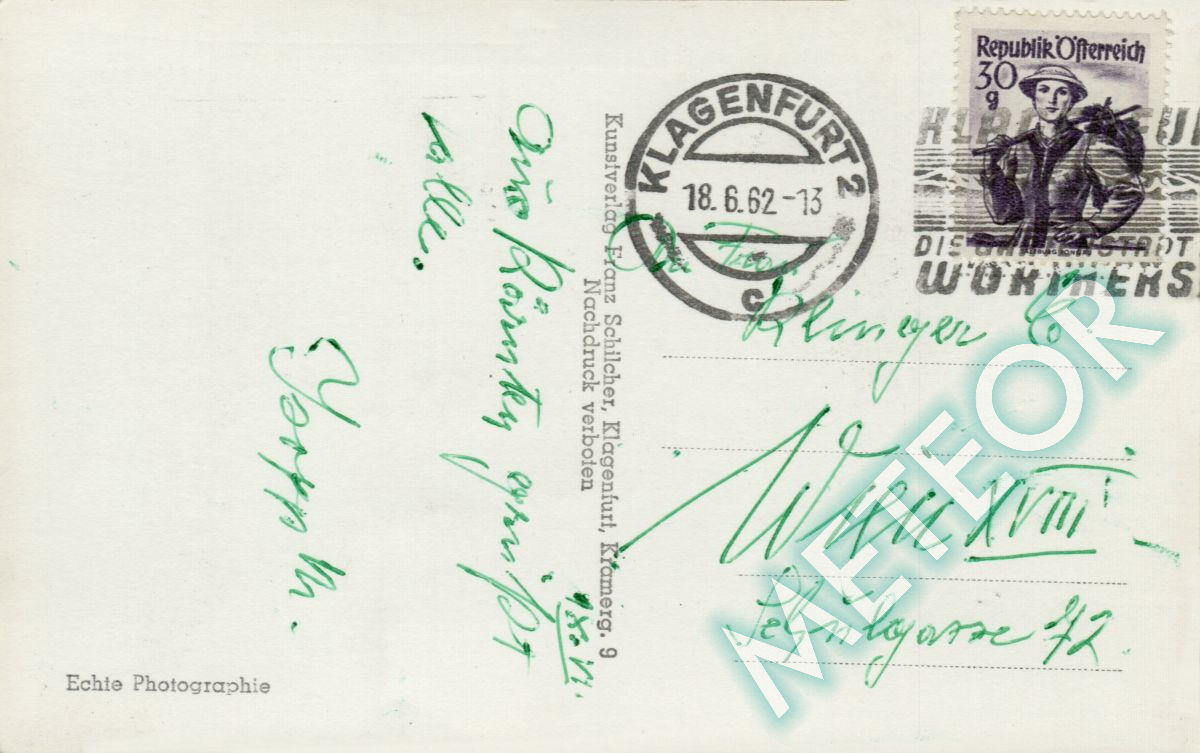 Republik Österreich
30
g
KLAGENFURT 2
18. 6. 62 - 13
c
KLAGENFU
DIE GARTENSTADT
WÖRTHERS
Kunstverlag Franz Schilcher, Klagenfurt, Kramerg. 9
Nachdruck verboten
18. VI.
Aus Kärnten grüßt
alle.
An Frau
Klinger E.
Wien XVIII
Schulgasse 72.
Echte Photographie
METEOR